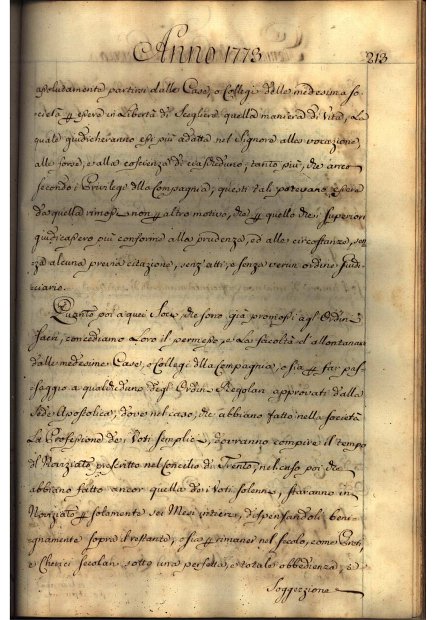 Anno 1773 213
assolutamente partirsi dalle Case, o Collegi delle medesima so-
cietà per essere in libertà di scegliere quella maniera di Vita, La
quale giudicheranno essi più adatta nel Signore alla vocazione,
alle forze, e alla coscienza di ciascheduno; tanto più, che anco
secondo i Privilegi della Compagnia, questi tali potevano essere
da quella rimossi non per altro motivo, che per quello che i Superiori
giudicassero più conforme alla prudenza, ed alle circostanze, sen-
za alcuna previa citazione, senz'atti, e senza verun ordine Giudi-
ciario.
Quanto poi a quei Socj, che sono già promossi agl'Ordini
Sacri, concediamo Loro il permesso, e La facoltà d'allontanarsi
dalle medesime Case, o Collegi della Compagnia, o sia per far pas-
saggio a qualcheduno degl'Ordini Regolari approvati dalla
Sede Apostolica, dove nel caso, che abbiano fatto nella società
La Professione dei Voti semplici, dovranno compire il tempo
del Noviziato prescritto nel Concilio di Trento; nel caso poi che
abbiano fatto ancor quella dei Voti solenni, staranno in
Noviziato per solamente sei Mesi intieri, dispensandoli beni-
gnamente sopra il restante; o sia per rimaner nel secolo, come Preti,
e Cherici secolari sotto una perfetta, e totale obbedienza, e
Soggezzione